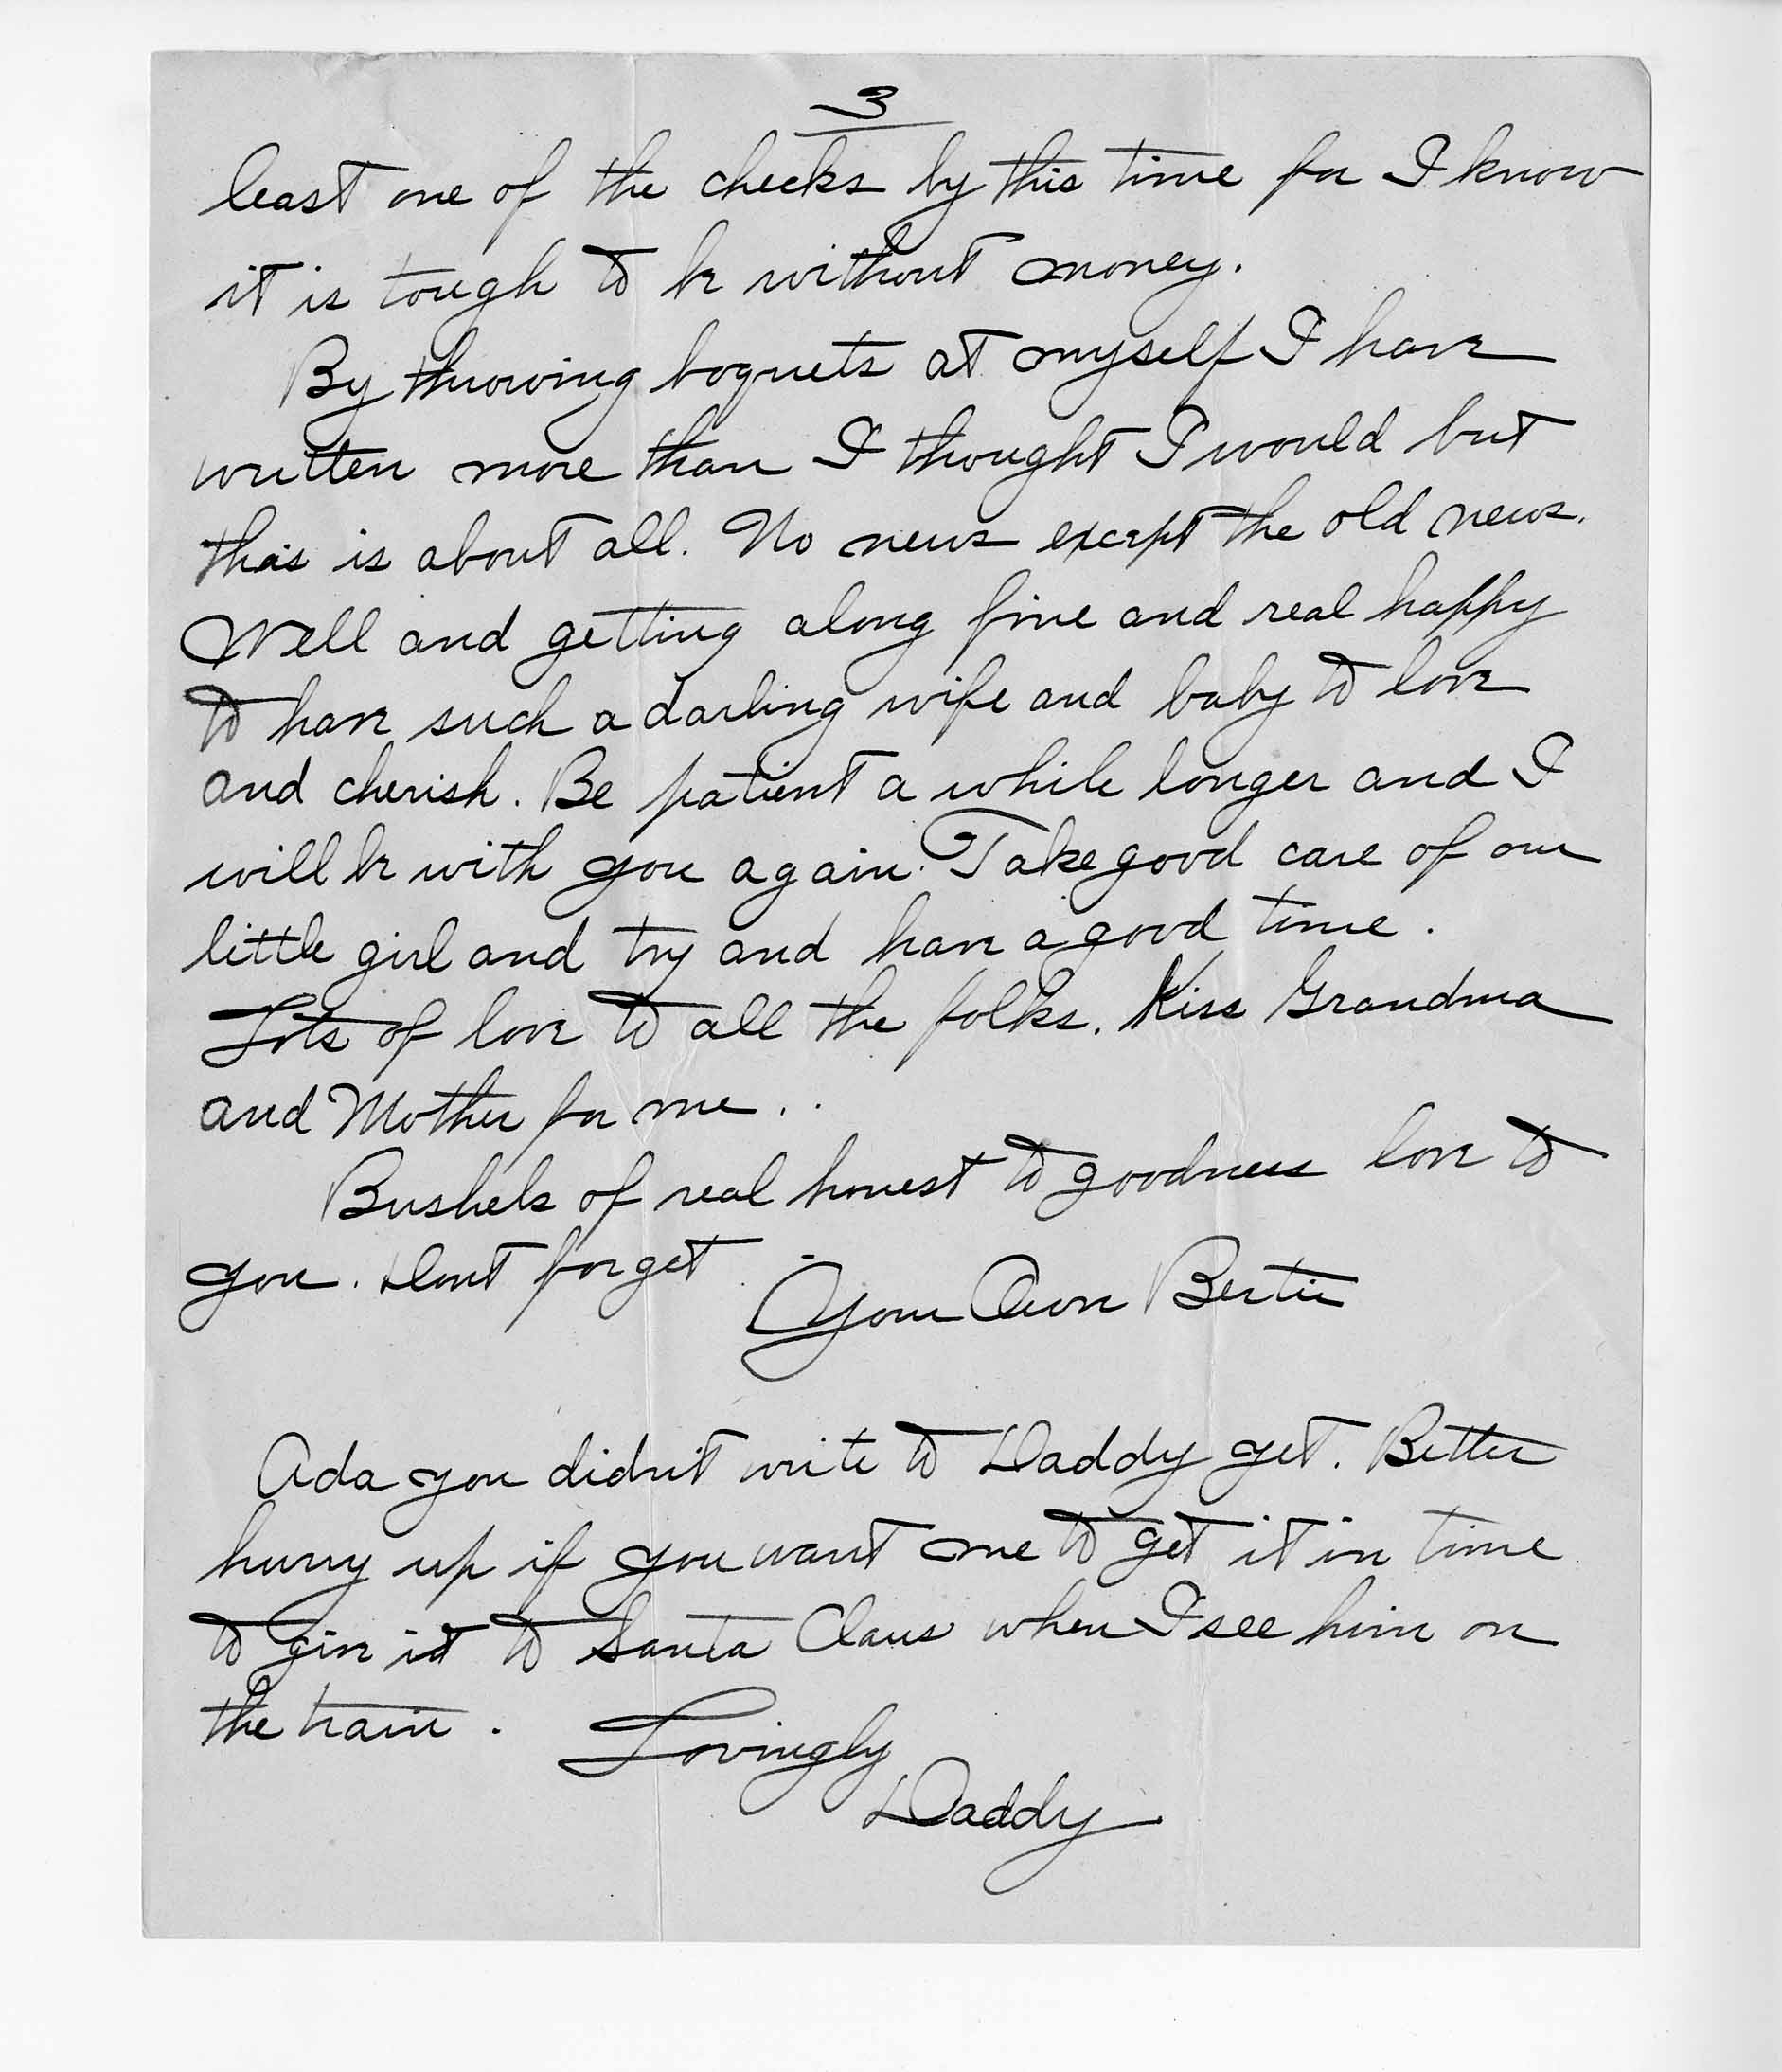 3
least one of the checks by this time for I know
it is tough to be without money.
By throwing boquets at myself I have
written more than I thought I would but
this is about all. No news except the old news.
Well and getting along fine and real happy
to have such a darling wife and baby to love
and cherish. Be patient a while longer and I
will be with you again. Take good care of our
little girl and try and have a good time.
Lots of love to all the folks. Kiss Grandma
and Mother for me..
Bushels of real honest to goodness love to
you. Dont forget
Your Own Bertie
Ada you didn't write to Daddy yet. Better
hurry up if you want me to get it in time
to give it to Santa Claus when I see him on
the train. Lovingly
Daddy